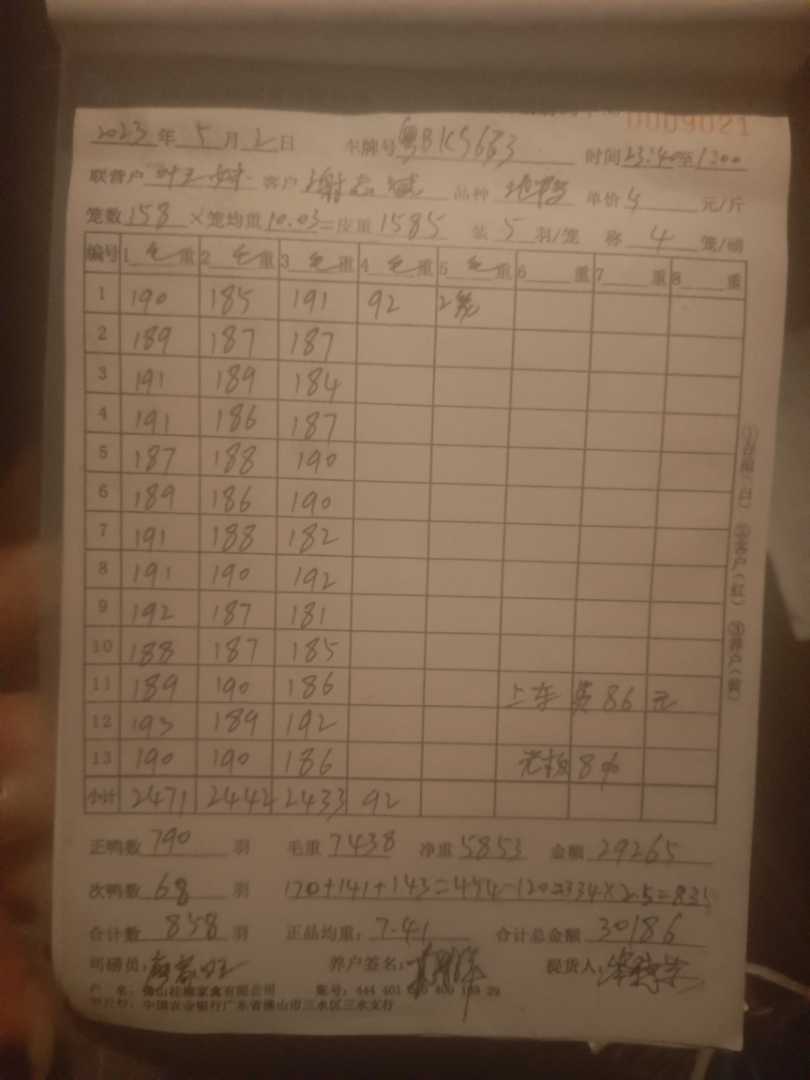 0009021
2023年 5月 2日 车牌号 粤BK5633 时间 23:40至1200
联营户 客户 谢志斌 品种 单价 5 元/斤
笼数 158 ×笼均重 10.03=皮重 1585 装 5 羽/笼 称 4 笼/磅
编号 1 毛重 2 毛重 3 毛重 4 毛重 5 毛重 6 重 7 重 8 重
1 190 185 191 92 2笼
2 189 187 187
3 191 189 184
4 191 186 187
5 187 188 190
6 189 186 190
7 191 188 182
8 191 190 192
9 192 187 181
10 188 187 185
11 189 190 186 上车费86元
12 193 189 192
13 190 190 186 8个
小计 2471 2442 2433 92
正鸭数 790 羽 毛重 7438 净重 5853 金额 29265
次鸭数 68 羽 170+141+143=454-120=334×2.5=835
合计数 858 羽 正品均重: 7.41 合计总金额 30186
司磅员: 养户签名: 提货人:
户 名: 佛山 家禽有限公司 账号: 444 401
中国农业银行广东省佛山市三水区三水支行
①存根(白) ②客户(红) ③养户(黄)